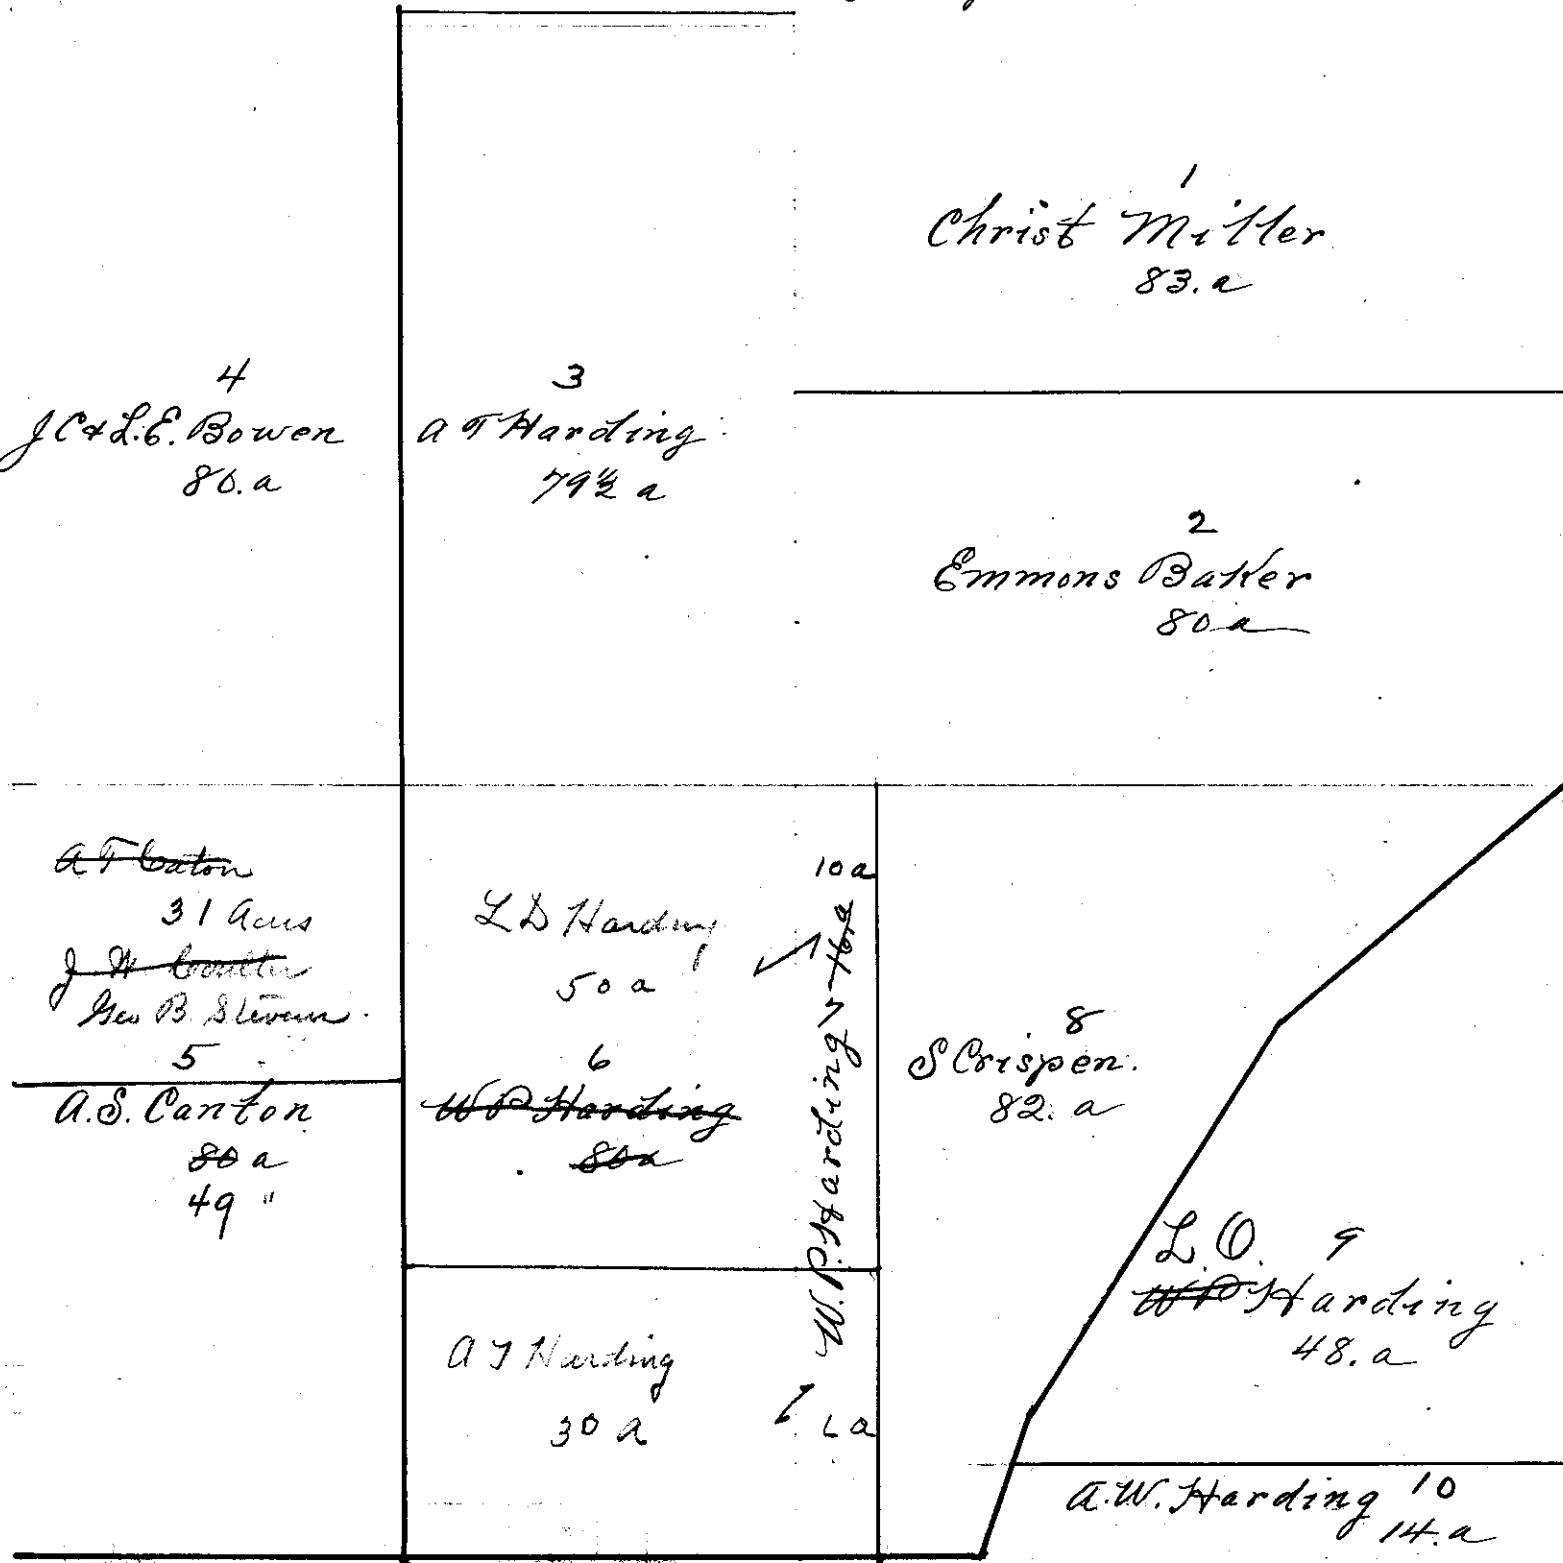 1
Christ Miller
83. a
4
J C & L. E. Bowen
80. a
3
A T Harding
79½ a
2
Emmons Baker
80 a
A T Caton
31 Acres
J W Coulter
Geo B. Stevens.
5
A. S. Canton
80 a
49 "
L D Harding
50 a
6
W P Harding
80 a
A T Harding
30 a
10 a
W. P. Harding 7
6 a
8
S Crispen.
82. a
L. O. 9
W P Harding
48. a
A. W. Harding 10
14. a